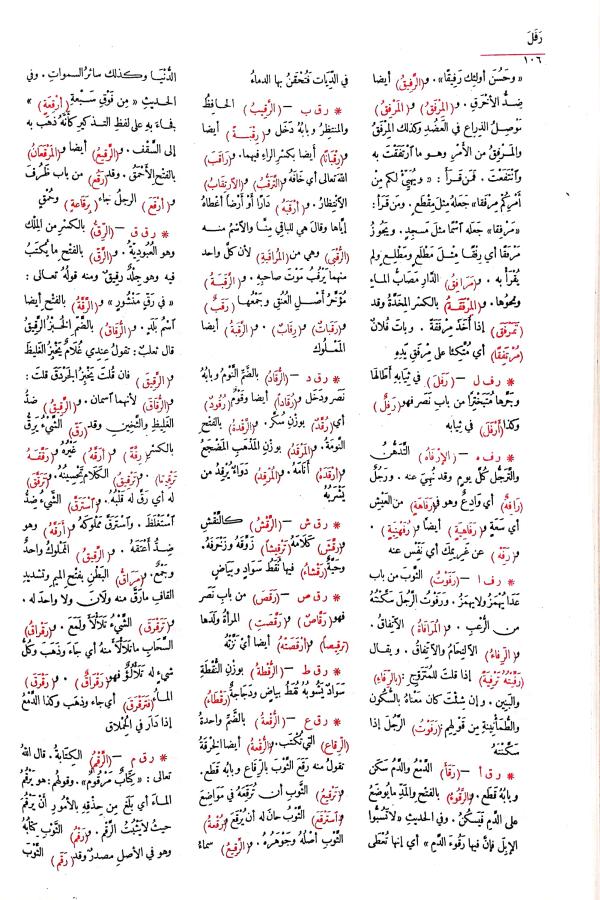 رَفَلَ
١٠٦
« وحَسُنَ أولئِك رَفِيقًا». و(الرَّفِيقُ) أيضا
ضِدُّ الأخْرَقِ . و(المِرْفَقُ) و(المَرْفِقُ)
مَوْصِلُ الذِراعِ في العَضُدِ وكذلك المِرْفَقُ
والمَرْفِقُ من الأمْرِ وهو ما ٱرْتَفَقْتَ به
وٱنْتَفَعْتَ . فَمَن قَرَأَ : « ويُهَيِّئْ لكم مِنْ
أَمْرِكُم مِرْفَقًا» جَعَلَهُ مثلَ مِقْطَعٍ . ومَن قَرَأ :
«مَرْفِقًا» جَعَلَه ٱسْمًا مثل مَسْجِدٍ . ويَجُوزُ
مَرْفَقًا أي رِفْقًا مِثْل مَطْلَعٍ ومَطْلِعٍ ولم
يُقْرَأْ به . و(مَرَافِقُ) الدَّارِ مَصَابُّ الماءِ
ونحوُها. و(المِرْفَقَةُ) بالكسْرِ المِخَدَّةُ وقد
(تَمَرْفَقَ) إذا أَخَذَ مِرْفَقَةً . وبات فُلانٌ
(مُرْتَفِقًا) أي مُتَّكِئًا على مِرْفَقِ يَدِهِ
* ر ف ل – (رَفَلَ) في ثِيَابِهِ أَطَالَها
وجَرَّها مُتَبَخْتِرًا من باب نَصَر فهو (رَافِلٌ)
وكذا (أَرْفَلَ) في ثيابِه
* ر ف ه – (الإِرْفَاهُ) التَّدَهُّنُ
والتَّرَجُّل كُلَّ يومٍ وقد نُهِيَ عنه . ورَجُلٌ
(رَافِهٌ) أي وَادِعٌ وهو في (رَفَاهَةٍ) من العَيْشِ
أي سَعَةٍ و(رَفَاهِيَةٍ) أيضًا و(رُفَهْنِيَةٍ) .
و(رَفِّهْ) عن غَرِيمِكَ أي نَفِّسْ عنه
* ر ف ا – (رَفَوْتُ) الثَّوبَ من باب
عَدَا يُهْمَزُ ولا يُهمز. ورَفَوْتُ الرَّجُلَ سَكَّنْتُهُ
من الرُّعْبِ . و(المُرَافَاةُ) الاتِّفاقُ .
و(الرِّفاءُ) الالتِحامُ والاتِّفاقُ . ويقال
(رَفَّيْتُهُ تَرْفِيَةً) إذا قلتَ للمُتَزَوِّجِ : (بالرِّفاءِ)
والبَنِين . و إن شئتَ كان معناهُ بالسُّكُونِ
والطُّمَأْنِينَةِ مِن قَوْلِهم : (رَفَوْتُ) الرَّجُلَ إذا
سَكَّنْتَهُ
* ر ق أ – (رَقَأَ) الدَّمْعُ والدَّمُ سَكَنَ
وبابُهُ قَطَع. و(الرَّقُوءُ) بالفتحِ والمَدِّ ما يُوضَعُ
على الدَّمِ فَيَسْكُنُ . وفي الحديثِ «لا تَسُبُّوا
الإِبِلَ فإنَّ فيها رَقُوءَ الدَّمِ » أي إنها تُعْطَى
في الدِّيَات فَتُحْقَنُ بها الدماءُ
* ر ق ب – (الرَّقِيبُ) الحافِظُ
والمنتظِرُ وبابُهُ دَخَلَ و(رِقْبَةً) أيضا
و(رِقْبَانًا) أيضا بكسرِ الراءِ فيهما. و(رَاقَبَ)
اللهَ تعالى أي خَافَهُ و(التَّرَقُّبُ) و(الارْتِقَابُ)
الانْتِظَارُ . و(أَرْقَبَهُ) دَارًا أو أَرْضًا أعْطَاهُ
إيَّاها وقال هي للباقي مِنَّا والاسمُ منه
(الرُّقْبَى) وهي من (المُراقَبةِ) لأن كلَّ واحد
منهما يَرْقُبُ مَوْتَ صاحِبِه . و(الرَّقَبَةُ)
مُؤَخَّرُ أَصْلِ العُنُقِ وجمعُها (رَقَبٌ)
و(رَقَبَاتٌ) و(رِقَابٌ) . و(الرَّقَبَةُ) أيضا
المَمْلُوك
* ر ق د – (الرُّقَادُ) بالضَّمِّ النَّوْمُ وبابُهُ
نَصَر ودَخَلَ و(رُقَادًا) أيضا وقَوْمٌ (رُقُودٌ)
أي (رُقَّدٌ) بوزنِ سُكَّرٍ . و(الرَّقْدَةُ) بالفتحِ
النَّوْمَةُ. و(المَرْقَدُ) بوزن المَذْهَبِ المَضْجَعُ
و(أَرْقَدَهُ) أَنَامَهُ . و(المُرْقِدُ) دَوَاءٌ يُرْقِدُ من
يَشْرَبُهُ
* ر ق ش – (الرَّقْشُ) كالنَّقْشِ
و(رَقَّشَ) كَلَامَهُ (تَرْقِيشًا) زَوَّقَهُ وزَخْرَفَهُ .
وحَيَّةٌ (رَقْشَاءُ) فيها نُقَطُ سَوَادٍ وبَيَاضٍ
* ر ق ص – (رَقَصَ) من باب نَصَر
فهو (رَقَّاصٌ) و(رَقَّصَتِ) المرأةُ ولَدَها
(تَرقِيصًا) و(أَرْقَصَتْهُ) أيضا أي نَزَّتْهُ
* ر ق ط – (الرُّقْطَةُ) بوزنِ النُّقْطَةِ
سَوَادٌ يَشُوبُهُ نُقَطُ بياضٍ ودَجَاجَةٌ (رَقْطَاءُ)
* ر ق ع – (الرُّقْعَةُ) بالضَّمِّ واحدةُ
(الرِّقاعِ) التي تُكْتَبُ. و(الرُّقْعَةُ) أيضا الخِرْقَةُ
تقولُ منه رَقَعَ الثَّوْبَ بالرِّقاعِ وبابُه قَطَع.
و(تَرْقِيعُ) الثَّوْبِ أن تُرَقِّعَهُ في مَوَاضِعَ
و(اسْتَرْقَعَ) الثَّوْبُ حانَ له أن يُرْقَعَ و(رُقْعَةُ)
الثَّوْبِ أَصْلُهُ وجَوْهَرُهُ . و(الرَّقِيعُ) سماءُ
الدُّنْيَا وكذلك سائرُ السمواتِ . وفي
الحديثِ « مِن فَوْقِ سَبْعَةِ (أَرْقِعَةٍ) »
بفاء به على لفظِ التذكيرِ كأنَّهُ ذَهَبَ به
إلى السَّقْفِ . و(الرَّقِيعُ) أيضا و(المَرْقَعَانُ)
بالفتح الأحْمَقُ . وقد (رَقُعَ) من باب ظَرُفَ
و(أَرْقَعَ) الرجلُ جاء (بِرَقَاعَةٍ) وحُمْقٍ
* ر ق ق – (الرِّقُّ) بالكسرِ من المِلْكِ
وهو العُبُودِيَّةُ . و(الرَّقُّ) بالفتح ما يُكْتَبُ
فيه وهو جِلْدٌ رقِيقٌ ومنه قولُهُ تعالى :
« في رَقٍّ مَنْشُورٍ » و(الرَّقَّةُ) بالفتحِ أيضا
ٱسْمُ بَلَدٍ . و(الرُّقَاقُ) بالضَّمِّ الخُبْزُ الرَّقِيقُ
قال ثعلبٌ : تقولُ عندِي غُلامٌ يَخْبِزُ الغَلِيظَ
و(الرَّقِيقَ) فان قُلتَ يَخْبِزُ الجَرْدَقَ قلتَ :
و(الرُّقَاقَ) لأنهما ٱسمانِ . و(الرَّقِيقُ) ضِدُّ
الغَلِيظِ والثَّخِينِ وقد (رَقَّ) الشيءُ يَرِقُّ
بالكسرِ (رِقَّةً) و(أَرَقَّهُ) غَيْرُهُ و(رَقَّقَهُ
تَرْقِيقًا) و(تَرْقِيقُ) الكلامِ تَحْسِينُهُ. و(تَرَقَّقَ)
له أي رَقَّ له قَلْبُهُ. و(ٱسْتَرَقَّ) الشيءُ ضِدُّ
ٱسْتَغْلَظَ . وٱستَرَقَّ مملوكَه و(أَرَقَّهُ) وهو
ضِدُّ أَعْتَقَهُ . و(الرَّقِيقُ) المَمْلُوكُ واحدٌ
وجَمْعٌ. و(مَرَاقُّ) البَطْنِ بفتح الميم وتشديدِ
القافِ مارَقَّ منه ولانَ ولا واحدَ له .
و(تَرَقْرَقَ) الشَّيْءُ تَلَأْلَأَ ولَمَعَ . و(رَقْرَاقُ)
السَّحَابِ ماتَلَأْلَأَ منه أي جاءَ وذَهَبَ وكُلُّ
شيءٍ له تَلَأْلُؤٌ فهو (رَقْرَاقٌ) . و(رَقْرَقَ)
الماءَ (فَتَرَقْرَقَ) أي جاء وذهَبَ وكذا الدَّمْعُ
إذا دَارَ في الحِمْلَاقِ
* ر ق م – (الرَّقْمُ) الكِتَابَةُ . قال اللهُ
تعالى : «كِتَابٌ مَرْقُومٌ» . وقولُهم: هو يَرْقُمُ
الماءَ أي بَلَغَ من حِذْقِهِ بالأمورِ أنْ يَرْقُمَ
حيثُ لايَثْبُتُ الرَّقْمُ . و(رَقْمُ) الثَّوْبِ كِتَابُهُ
وهو في الأصلِ مصدرٌ وقد (رَقَمَ) الثَّوْبَ